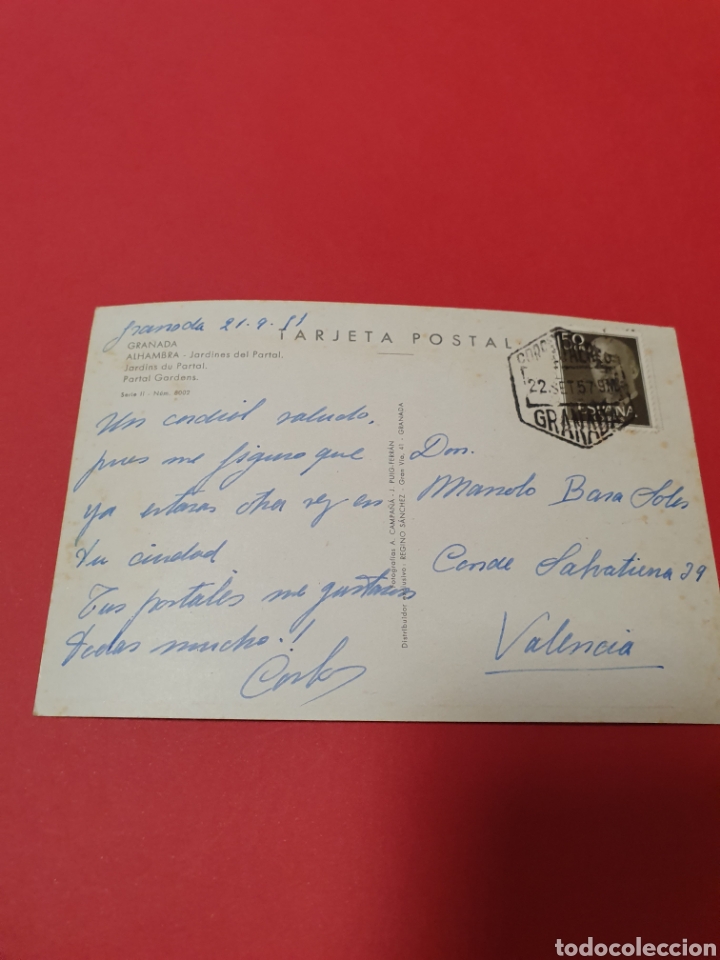 Granada 21.9.51
TARJETA POSTAL
GRANADA
ALHAMBRA - Jardines del Partal.
Jardins du Partal.
Partal Gardens.
Serie II - Núm. 8002
Un cordial saludo,
pues me figuro que
ya estaras otra vez en
tu ciudad
Tus postales me gustaron
todas mucho.!
Carlos
Fotografías A. CAMPAÑÁ - J. PUIG-FERRÁN
Distribuidor exclusivo - REGINO SÁNCHEZ - Gran Vía, 41 - GRANADA
50
CORREO AEREO
22 SET 57
GRANADA
Don
Manolo Bara Soles
Conde Salvatierra 39
Valencia
todocoleccion